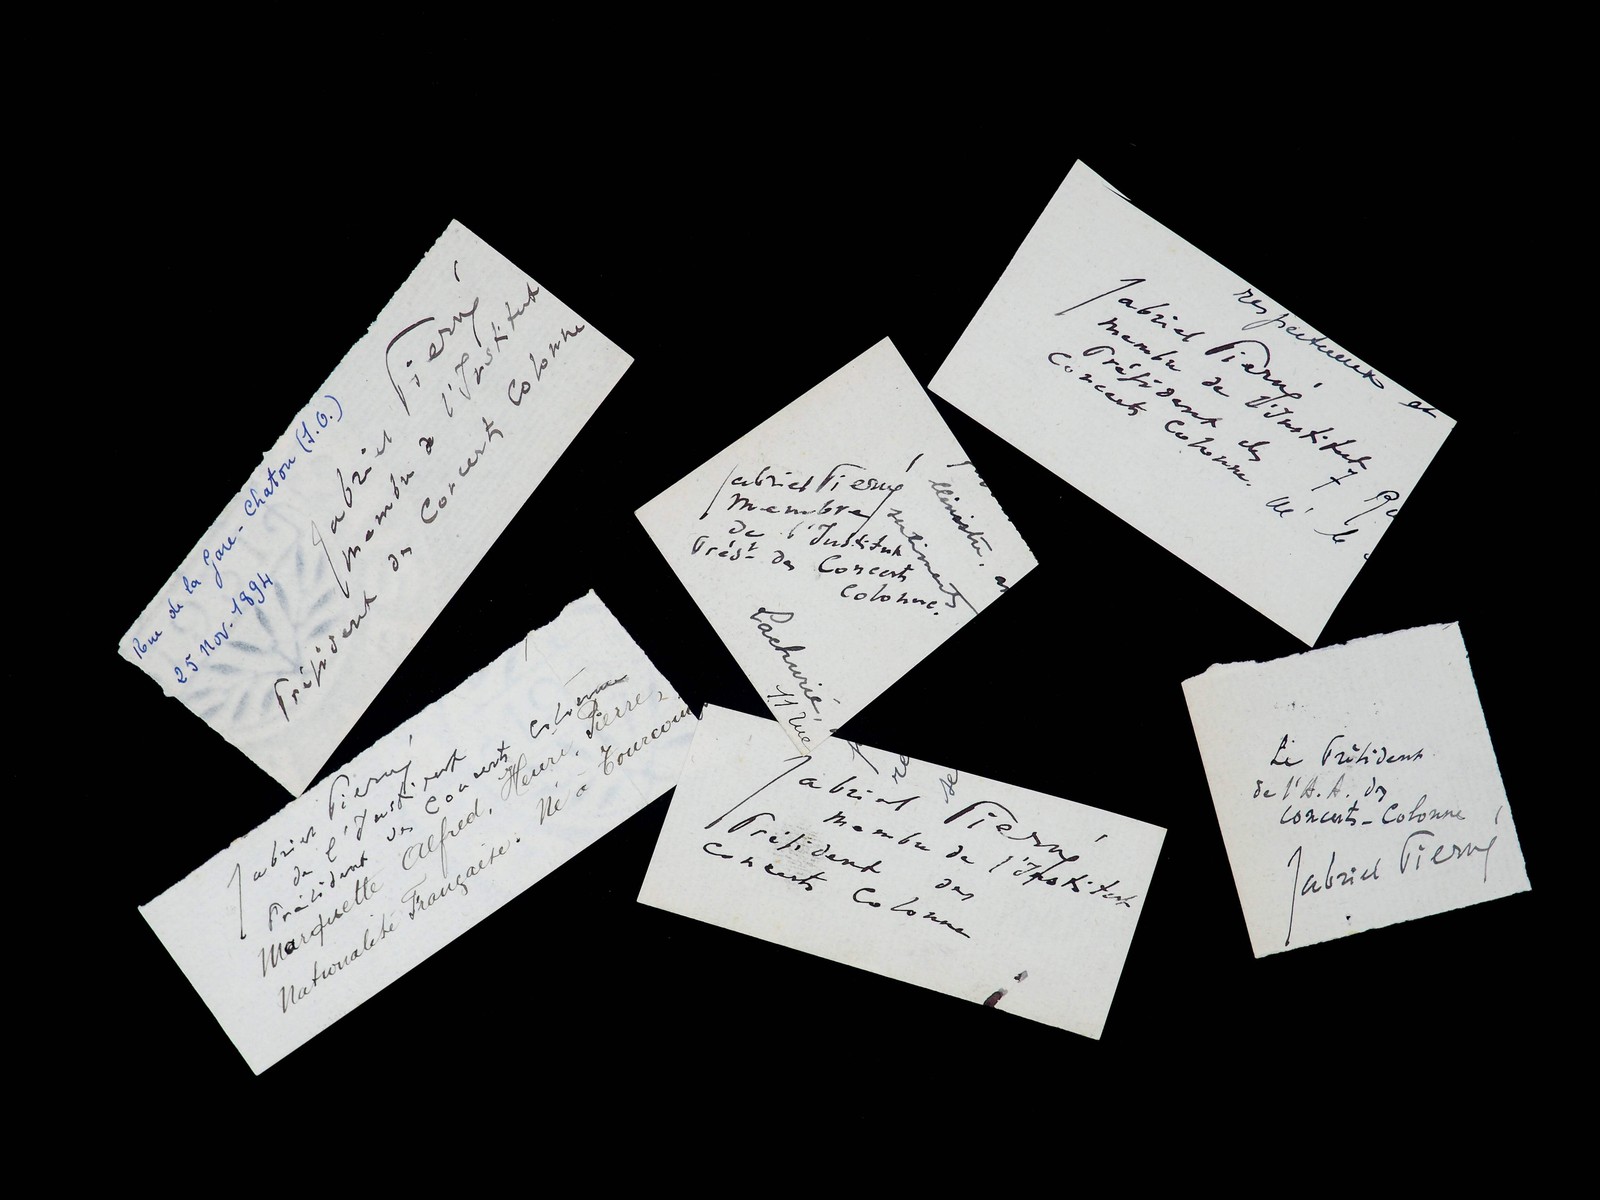 Rue de la Gare - Chatou (S.O.)
25 Nov. 1894
Gabriel Pierné
membre de l'Institut
Président des Concerts Colonne
Gabriel Pierné
de l'Institut
Président des Concerts Colonne
Marquette Alfred, Henri, Pierre,
Nationalité Française. Né à Tourcoing
Ministre,
sentiments
Gabriel Pierné
Membre
de l'Institut
Présᵗ des Concerts
Colonne.
11 rue
Gabriel Pierné
membre de l'Institut
Président des
Concerts Colonne
respectueux et
Gabriel Pierné
Membre de l'Institut
Président des
Concerts Colonne.
Né le
Le Président
de l'A. A. des
Concerts-Colonne
Gabriel Pierné